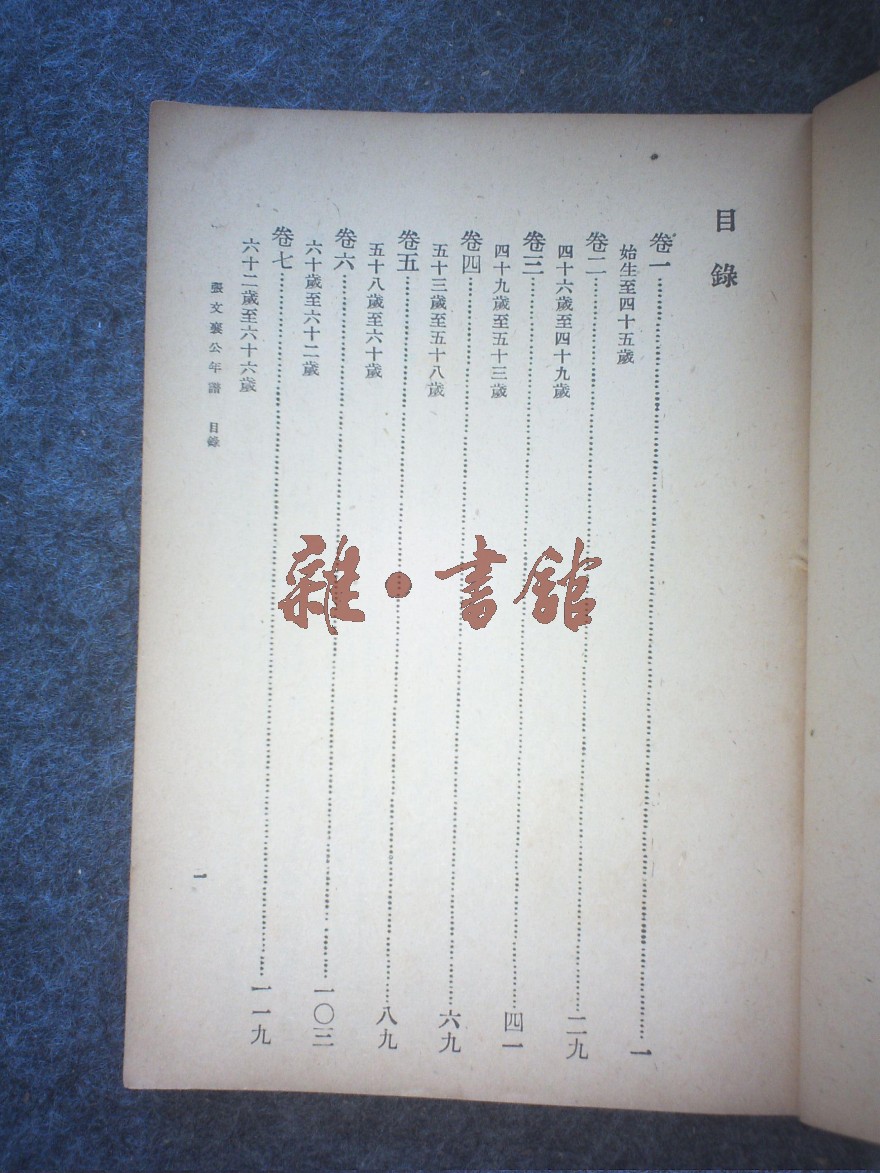 目錄
卷一……一
始生至四十五歲
卷二……二九
四十六歲至四十九歲
卷三……四一
四十九歲至五十三歲
卷四……六九
五十三歲至五十八歲
卷五……八九
五十八歲至六十歲
卷六……一〇三
六十歲至六十二歲
卷七……一一九
六十二歲至六十六歲
張文襄公年譜 目錄
一
雜·書館